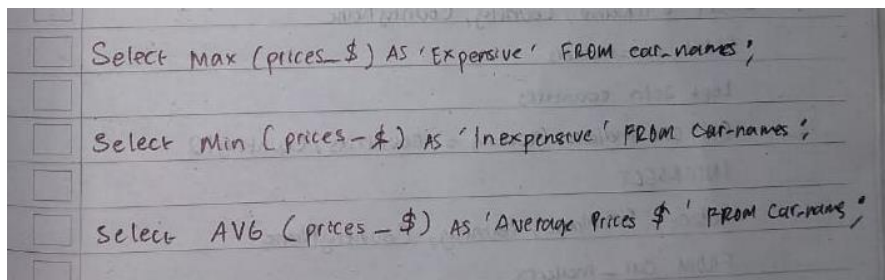 Select Max (prices_$) AS 'Expensive' FROM car_names;
Select Min (prices_$) AS 'Inexpensive' FROM Car_names;
Select AVG (prices_$) AS 'Average Prices $' FROM Car_names;